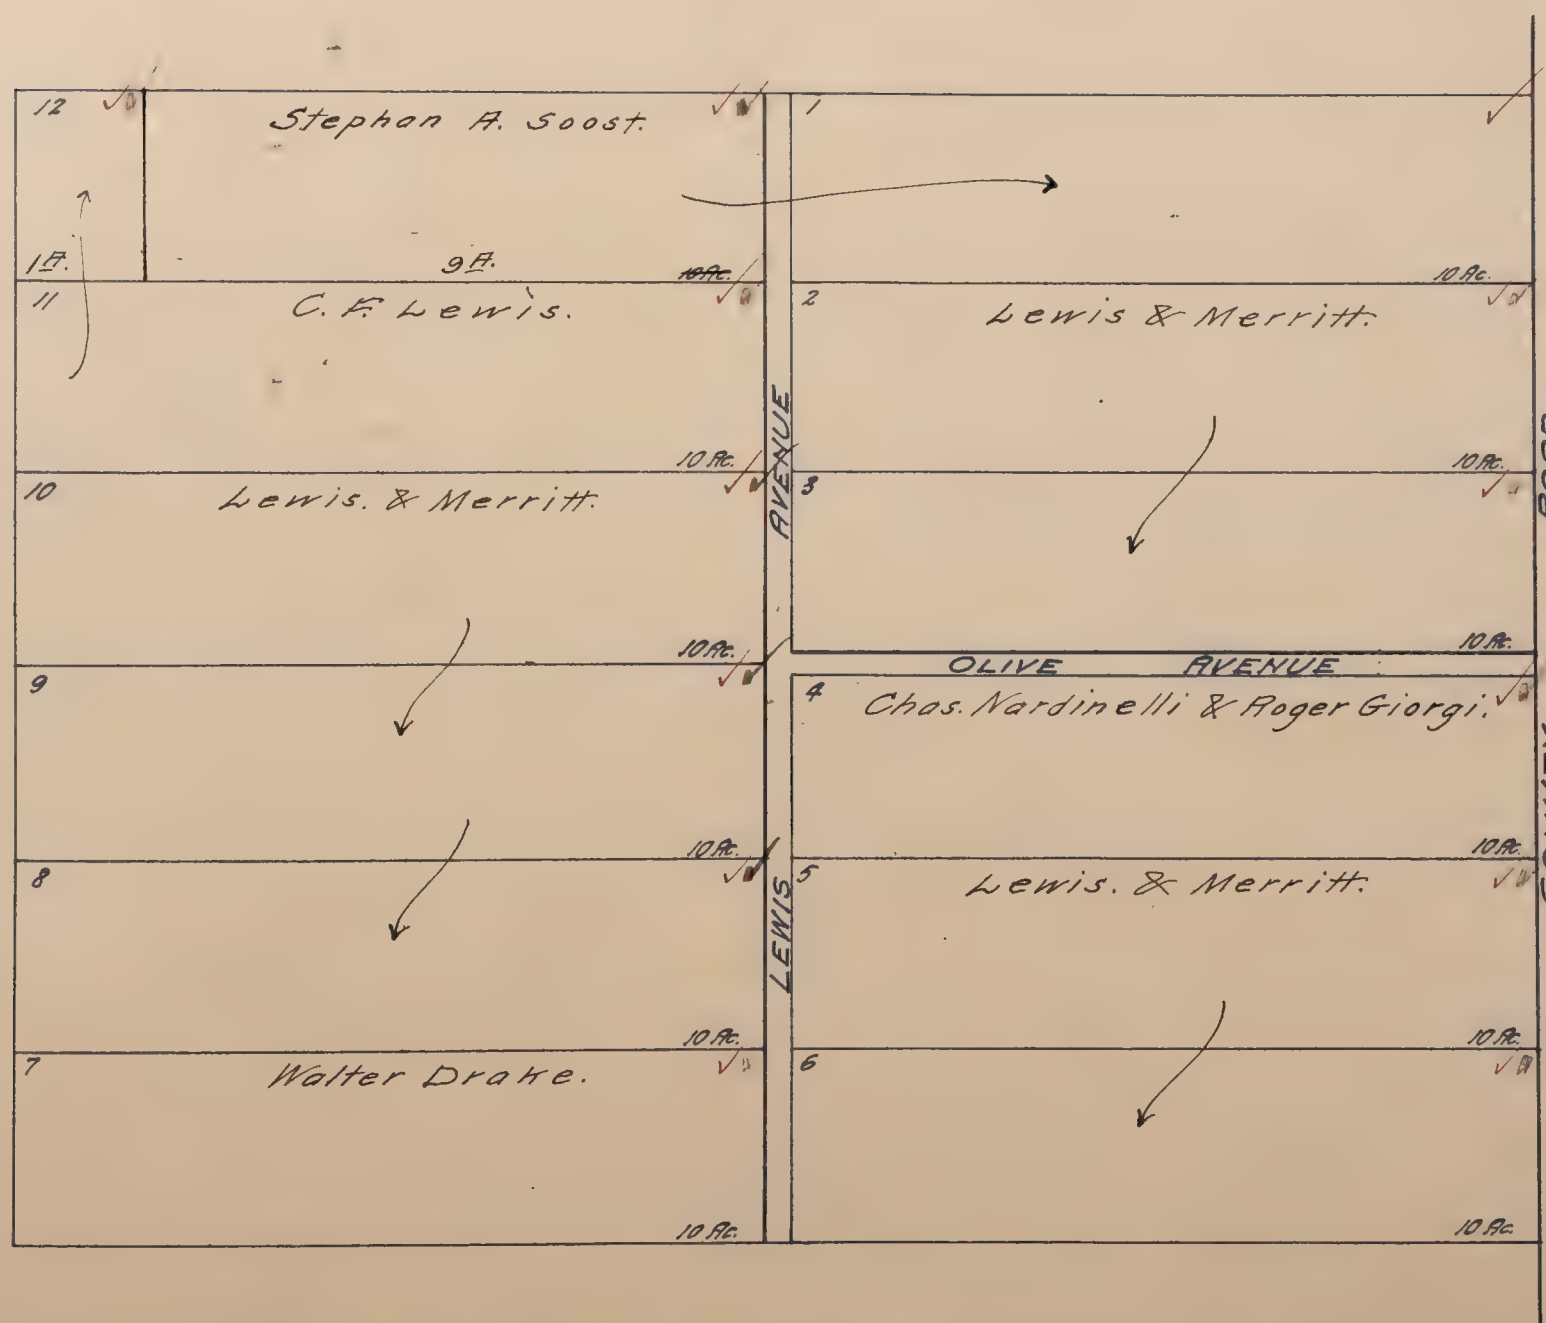 12
Stephan A. Soost.
1 A.
9 A.
10 Ac.
11
C. F. Lewis.
10 Ac.
10
Lewis. & Merritt.
10 Ac.
9
10 Ac.
8
10 Ac.
7
Walter Drake.
10 Ac.
LEWIS AVENUE
1
10 Ac.
2
Lewis & Merritt.
10 Ac.
3
10 Ac.
OLIVE AVENUE
4
Chas. Nardinelli & Roger Giorgi.
10 Ac.
5
Lewis. & Merritt.
10 Ac.
6
10 Ac.